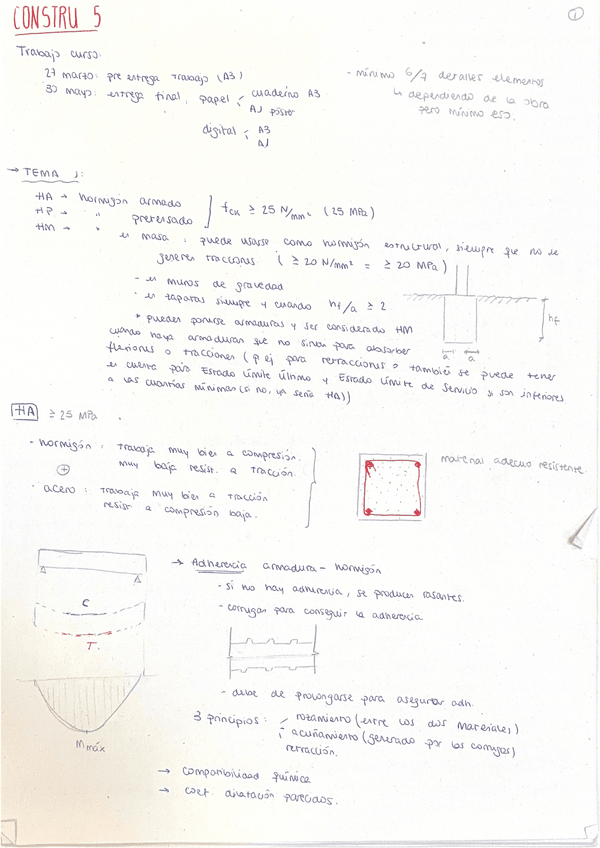 CONSTRU 5
1
Trabajo curso:
27 marzo: pre entrega trabajo (A3)
30 mayo: entrega final, papel; cuaderno A3
A1 póster
digital; A3
A1
- mínimo 6/7 detalles elementos
↳ dependiendo de la obra
pero mínimo eso.
→ TEMA 1:
HA → hormigón armado
HP → " pretensado
fck ≥ 25 N/mm² (25 MPa)
HM → " en masa : puede usarse como hormigón estructural, siempre que no se
generen tracciones (≥ 20 N/mm² = ≥ 20 MPa)
- en muros de gravedad
- en zapatas siempre y cuando hf/a ≥ 2
* pueden ponerse armaduras y ser considerado HM
cuando haya armaduras que no sirvan para absorber
flexiones o tracciones (p ej para retracciones o también se puede tener
en cuenta para Estado Límite Último y Estado Límite de Servicio si son inferiores
a las cuantías mínimas (si no, ya sería HA))
hf
a a
HA ≥ 25 MPa
- hormigón : trabaja muy bien a compresión.
muy baja resist. a tracción.
+
- acero : trabaja muy bien a tracción
resist a compresión baja.
material adecuo resistente.
→ Adherencia armadura - hormigón
- si no hay adherencia, se producen rasantes.
- corrugar para conseguir la adherencia
C
T.
- debe de prolongarse para asegurar adh.
3 principios: rozamiento (entre los dos materiales)
acuñamiento (generado por las corrugas)
retracción.
Mmáx
→ compatibilidad química
→ coef. dilatación parecidos.